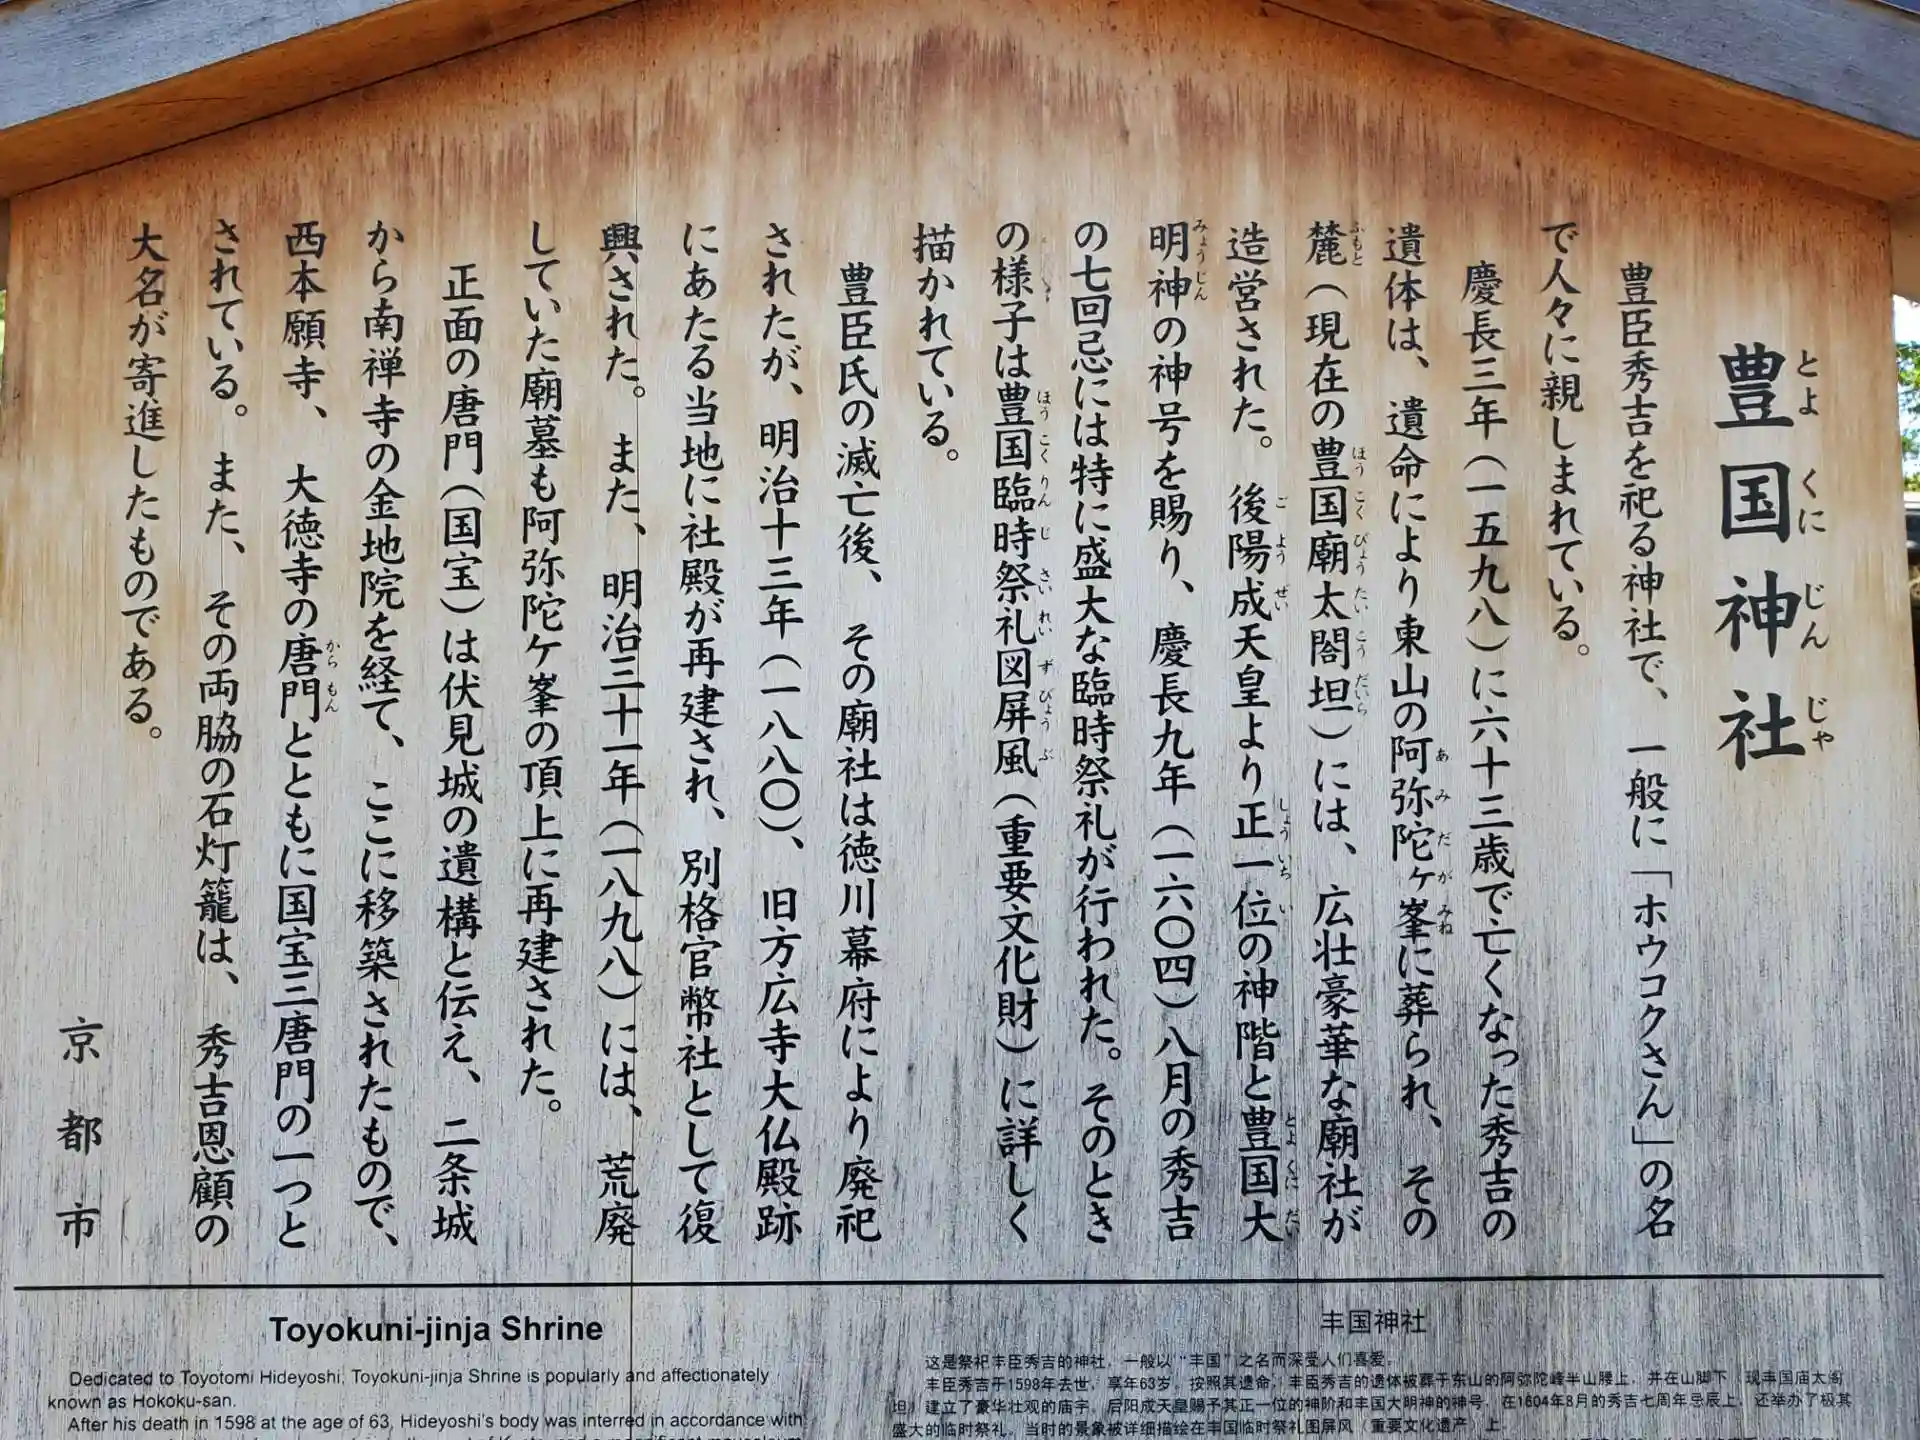 豊国神社
とよくにじんじゃ
豊臣秀吉を祀る神社で、一般に「ホウコクさん」の名
で人々に親しまれている。
慶長三年(一五九八)に六十三歳で亡くなった秀吉の
遺体は、遺命により東山の阿弥陀ヶ峯に葬られ、その
あみだがみね
麓(現在の豊国廟太閤坦)には、広壮豪華な廟社が
ふもと ほうこくびょうたいこうだいら
造営された。後陽成天皇より正一位の神階と豊国大
ごようぜい しょういちい とよくにだい
明神の神号を賜り、慶長九年(一六〇四)八月の秀吉
みょうじん
の七回忌には特に盛大な臨時祭礼が行われた。そのとき
の様子は豊国臨時祭礼図屏風(重要文化財)に詳しく
ほうこくりんじさいれいずびょうぶ
描かれている。
豊臣氏の滅亡後、その廟社は徳川幕府により廃祀
されたが、明治十三年(一八八〇)、旧方広寺大仏殿跡
にあたる当地に社殿が再建され、別格官幣社として復
興された。また、明治三十一年(一八九八)には、荒廃
していた廟墓も阿弥陀ケ峯の頂上に再建された。
正面の唐門(国宝)は伏見城の遺構と伝え、二条城
から南禅寺の金地院を経て、ここに移築されたもので、
西本願寺、大徳寺の唐門とともに国宝三唐門の一つと
からもん
されている。また、その両脇の石灯籠は、秀吉恩顧の
大名が寄進したものである。
京都市
Toyokuni-jinja Shrine
Dedicated to Toyotomi Hideyoshi, Toyokuni-jinja Shrine is popularly and affectionately
known as Hokoku-san.
After his death in 1598 at the age of 63, Hideyoshi's body was interred in accordance with
丰国神社
这是祭祀丰臣秀吉的神社，一般以“丰国”之名而深受人们喜爱。
丰臣秀吉于1598年去世，享年63岁，按照其遗命，丰臣秀吉的遗体被葬于东山的阿弥陀峰半山腰上，并在山脚下（现丰国庙太阁
坦）建立了豪华壮观的庙宇，后阳成天皇赐予其正一位的神阶和丰国大明神的神号，在1604年8月的秀吉七周年忌辰上，还举办了极其
盛大的临时祭礼。当时的景象被详细描绘在丰国临时祭礼图屏风（重要文化遗产）上。